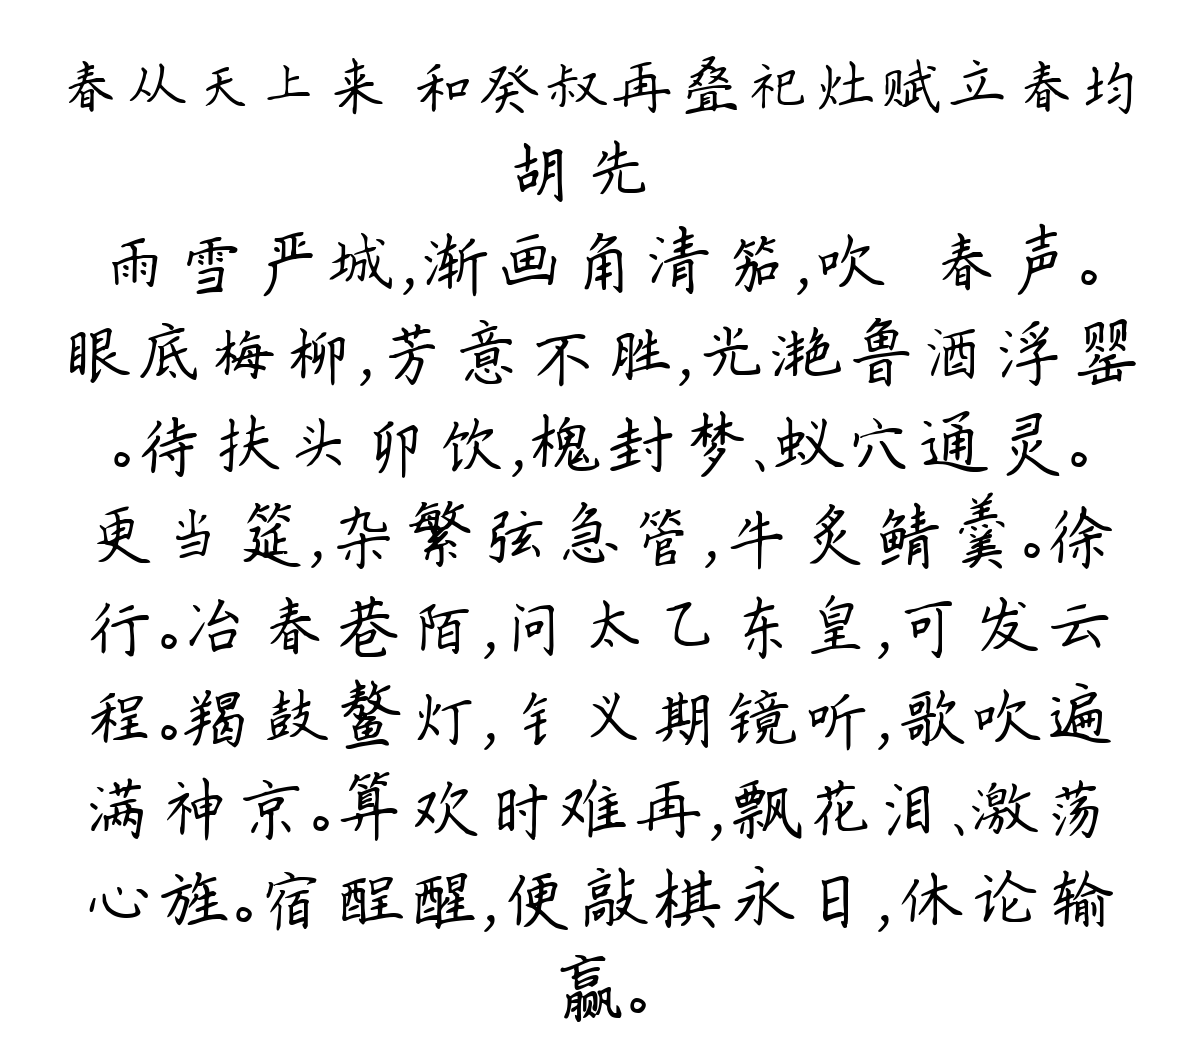 春从天上来 和癸叔再叠祀灶赋立春均
胡先
雨雪严城,渐画角清笳,吹 春声。
眼底梅柳,芳意不胜,光滟鲁酒浮罂
。待扶头卯饮,槐封梦、蚁穴通灵。
更当筵,杂繁弦急管,牛炙鲭羹。徐
行。冶春巷陌,问太乙东皇,可发云
程。羯鼓鳌灯,钅义期镜听,歌吹遍
满神京。算欢时难再,飘花泪、激荡
心旌。宿酲醒,便敲棋永日,休论输
赢。